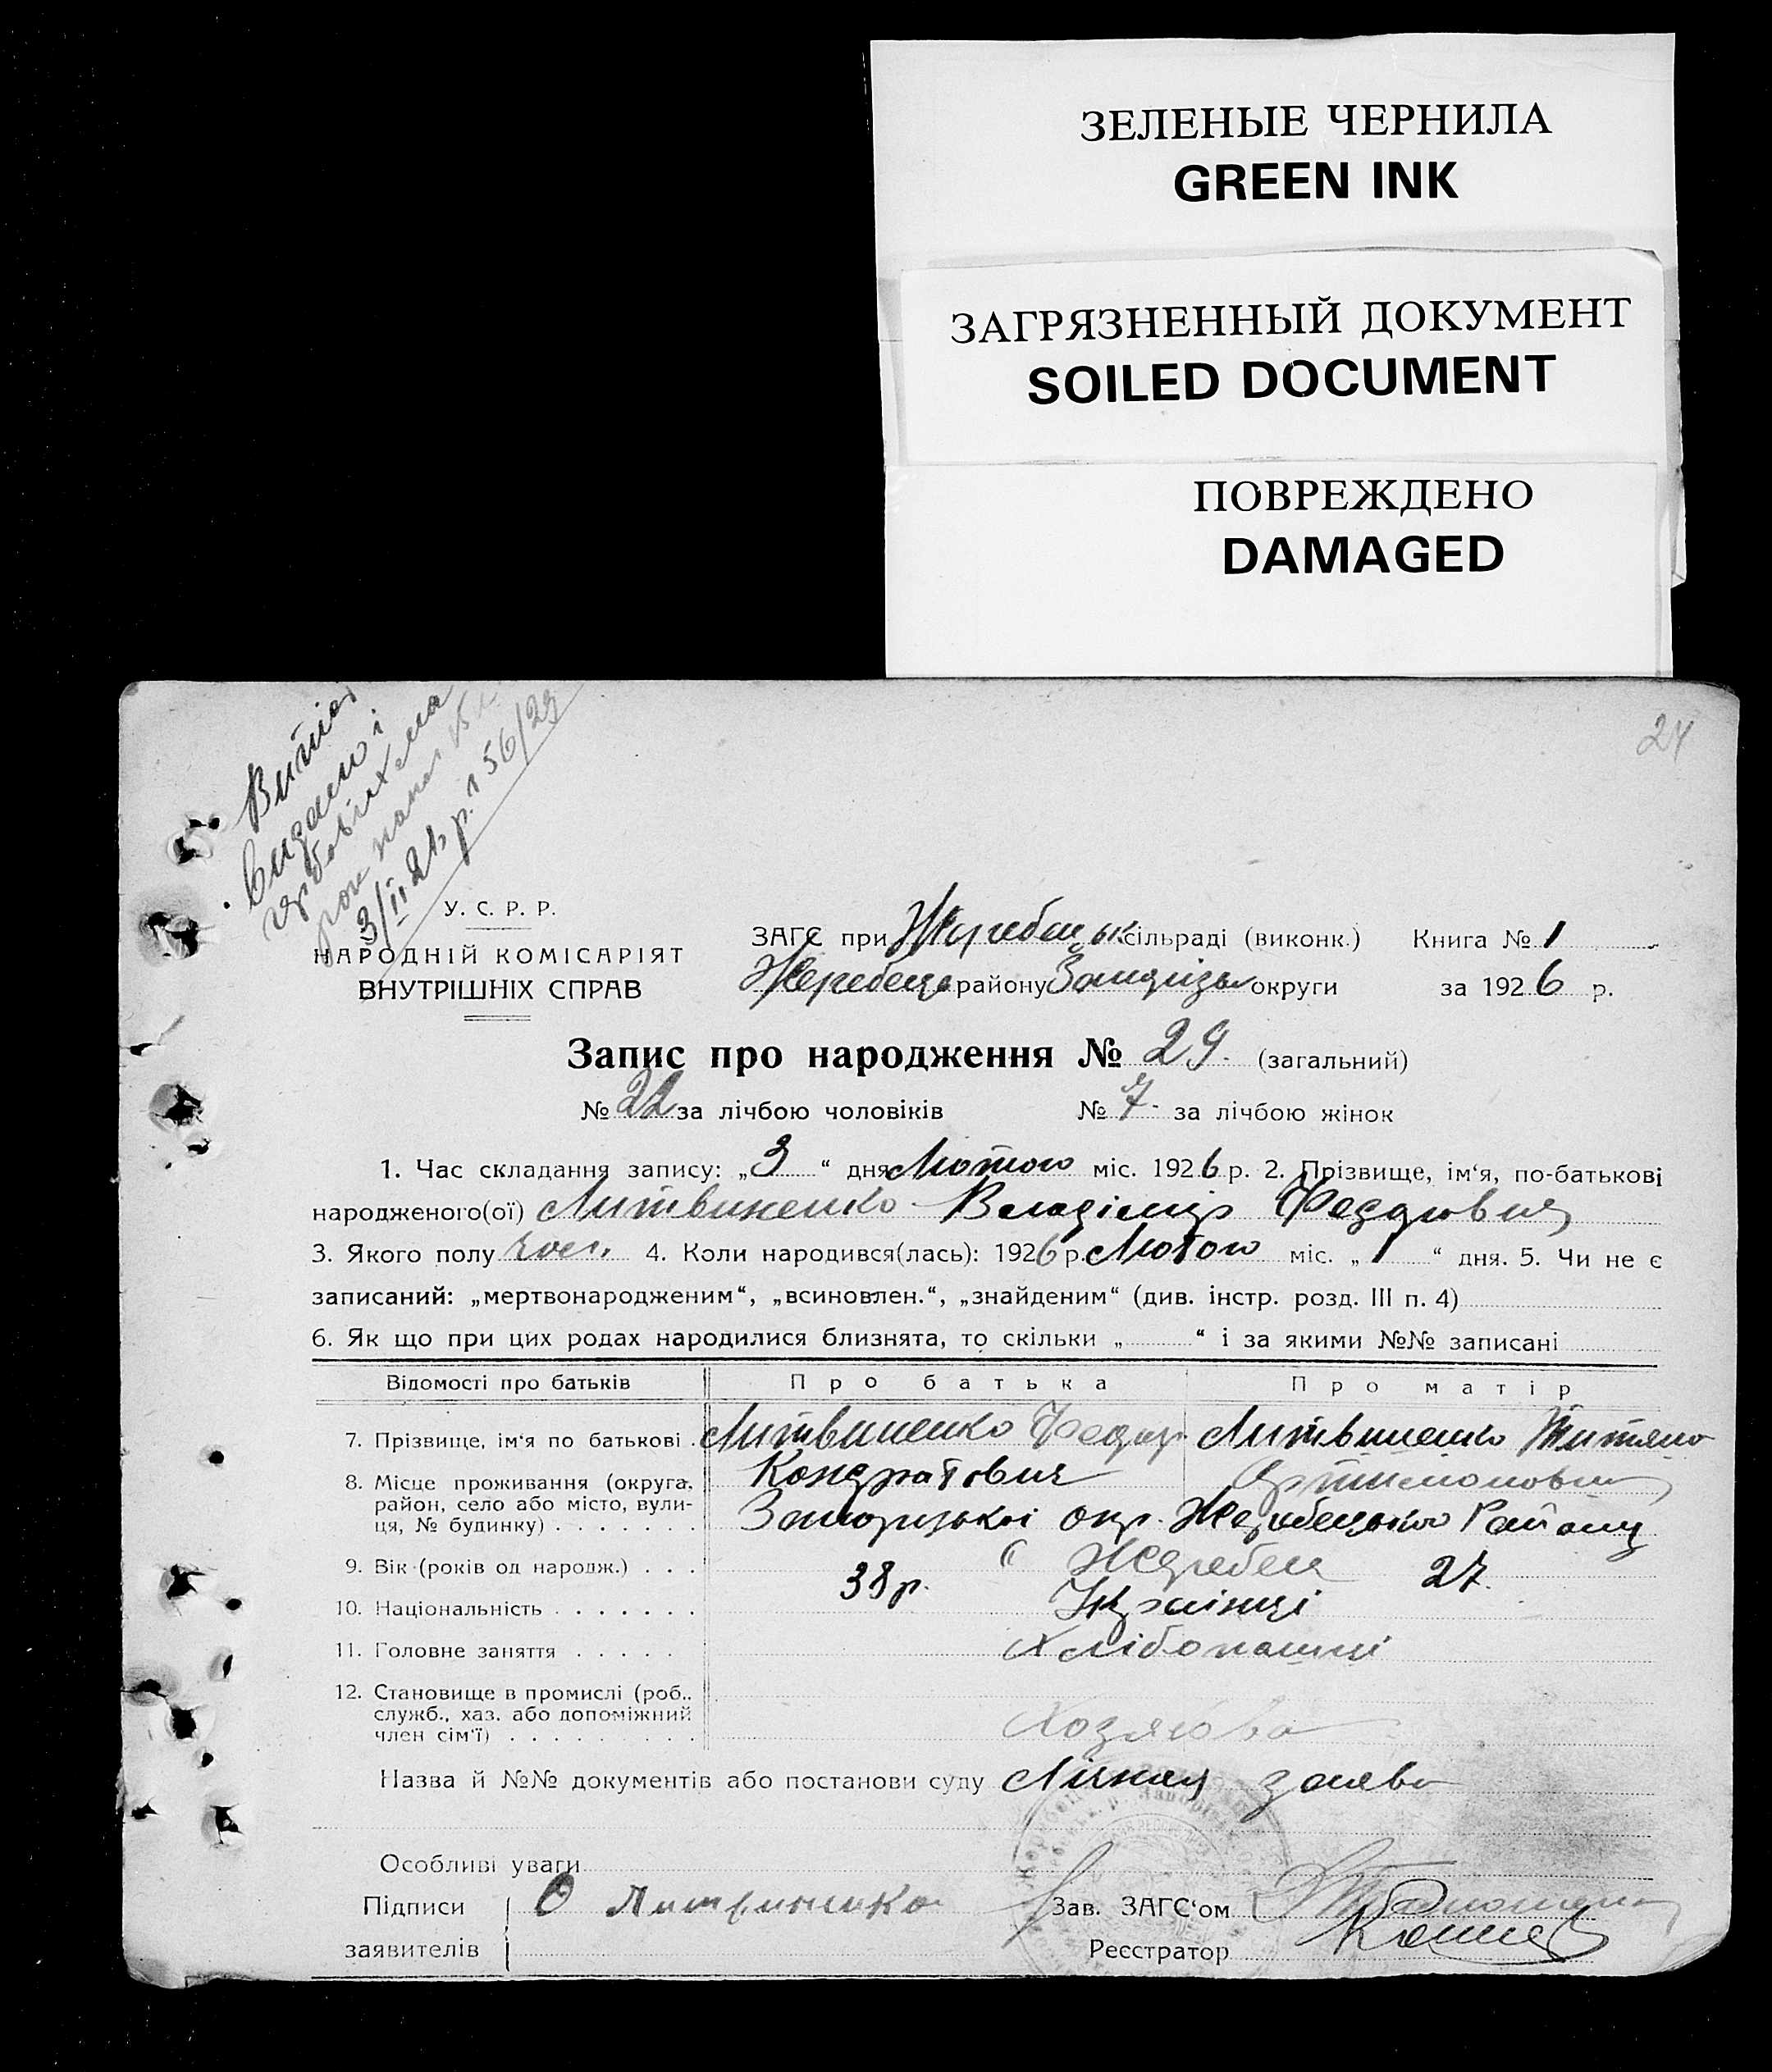 ЗЕЛЕНЫЕ ЧЕРНИЛА
GREEN INK
ЗАГРЯЗНЕННЫЙ ДОКУМЕНТ
SOILED DOCUMENT
ПОВРЕЖДЕНО
DAMAGED
24
Витяг
видано і
3/II 26 р. 156/29
У. С. Р. Р.
НАРОДНІЙ КОМІСАРІЯТ
ВНУТРІШНІХ СПРАВ
ЗАГС при Жеребецьк сільраді (виконк.) Книга № 1
Жеребець району Запорізьк округи за 1926 р.
Запис про народження № 29. (загальний)
№ 22 за лічбою чоловіків № 7. за лічбою жінок
1. Час складання запису: „3“ дня Лютого міс. 1926 р. 2. Прізвище, ім‘я, по-батькові
народженого(ої) Литвиненко Владімір Федорович
3. Якого полу чол. 4. Коли народився(лась): 1926 р. Лютого міс. „1“ дня. 5. Чи не є
записаний: „мертвонародженим“, „всиновлен.“, „знайденим“ (див. інстр. розд. III п. 4)
6. Як що при цих родах народилися близнята, то скільки „ “ і за якими №№ записані
Відомості про батьків Про батька Про матір
7. Прізвище, ім‘я по батькові Литвиненко Федор Литвиненко Титяна
Кондратович
8. Місце проживання (округа, район, село або місто, вули-
ця, № будинку) Запорізької окр. Жеребецького Району
с Жеребец
9. Вік (років од народж.) 38 р. 27.
10. Національність Українці
11. Головне заняття Хлібопашці
12. Становище в промислі (роб.,
служб., хаз. або допоміжний
член сім‘ї) Хозяєва
Назва й №№ документів або постанови суду Лична заява
Особливі уваги
Підписи
заявителів Литвиненко
Зав. ЗАГС‘ом
Реєстратор